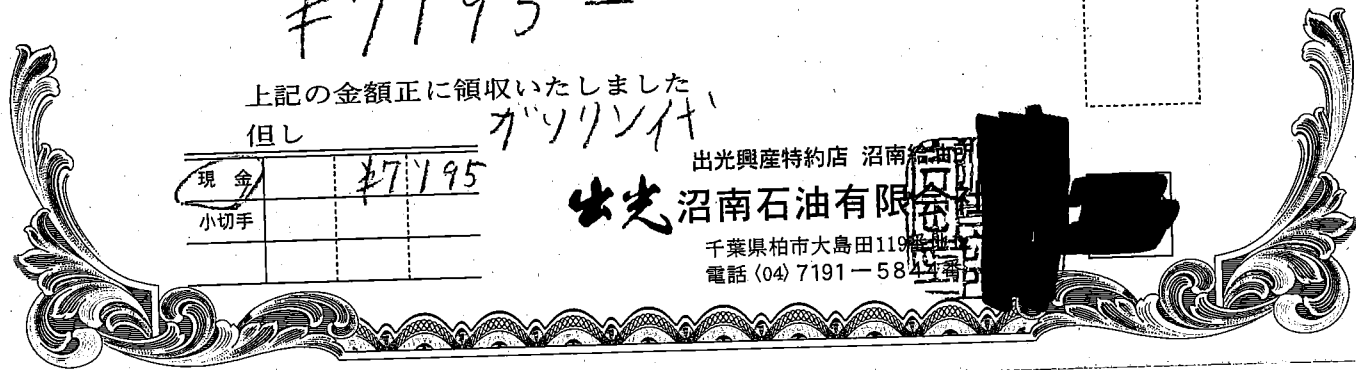 ¥7195-
上記の金額正に領収いたしました
但し ガソリン代
現金 ¥7195
小切手
出光興産特約店 沼南給油所
出光 沼南石油有限会社
千葉県柏市大島田119
電話〈04〉7191-5844番